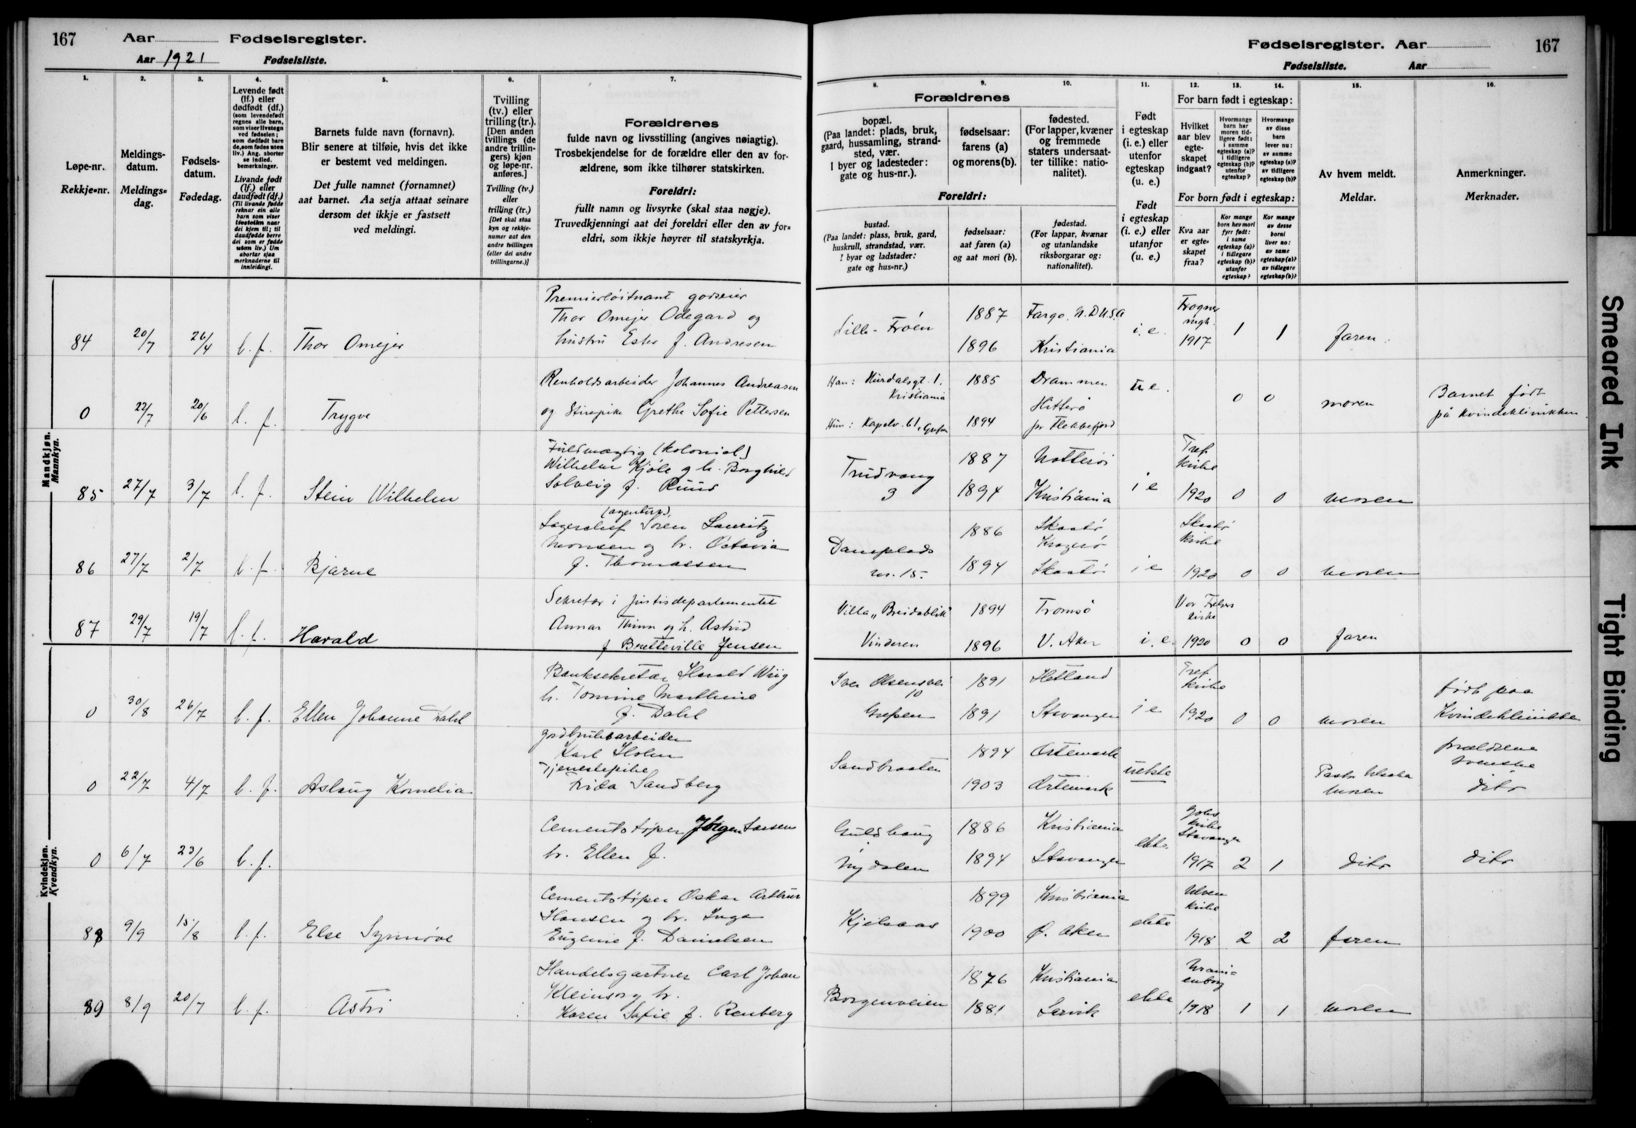 167 Aar Fødselsregister.
Aar 1921 Fødselsliste.
Fødselsregister. Aar 167
Fødselsliste. Aar
1. 2. 3. 4. 5. 6. 7.
Løpe-nr.
Rekkje-nr.
Meldings-
datum.
Meldings-
dag.
Fødsels-
datum.
Fødedag.
Levende født
(lf.) eller
dødfødt (df.)
(som levendefødt
regnes alle barn,
som viser livstegn
ved fødselen;
som dødfødt barn
de, som fødes uten
liv.) Ang. aborter
se indled.
bemerkninger.
Livande fødd
(lf.) eller
daudfødd (df.)
Barnets fulde navn (fornavn).
Blir senere at tilføie, hvis det ikke
er bestemt ved meldingen.
Det fulle namnet (fornamnet)
aat barnet. Aa setja attaat seinare
dersom det ikkje er fastsett
ved meldingi.
Tvilling
(tv.) eller
trilling (tr.).
[Den anden
tvillings (de
andre trillin-
gers) kjøn
og løpe-nr.
anføres.]
Tvilling (tv.)
eller
trilling (tr.)
[Det skal staa
kyn og rekkje-
numer aat den
andre tvillingen
(eller dei andre
trillingarne.)]
Forældrenes
fulde navn og livsstilling (angives nøiagtig).
Trosbekjendelse for de forældre eller den av for-
ældrene, som ikke tilhører statskirken.
Foreldri:
fullt namn og livsyrke (skal staa nøgje).
Truvedkjenningi aat dei foreldri eller den av for-
eldri, som ikkje høyrer til statskyrkja.
8. 9. 10. 11. 12. 13. 14. 15. 16.
Forældrenes
bopæl.
(Paa landet: plads, bruk,
gaard, hussamling, strand-
sted, vær.
I byer og ladesteder:
gate og hus-nr.).
fødselsaar:
farens (a)
og morens (b).
fødested.
(For lapper, kvæner
og fremmede
staters undersaat-
ter tillike: natio-
nalitet).
Foreldri:
bustad.
(Paa landet: plass, bruk, gard,
huskrull, strandstad, vær.
I byar og ladstader:
gate og hus-nr.)
fødselsaar:
aat faren (a)
og aat mori (b).
fødestad.
(For lappar, kvænar
og utanlandske
riksborgarar og:
nationalitet).
Født
i egteskap
(i. e.) eller
utenfor
egteskap
(u. e.)
Født
i egteskap
(i. e.) eller
utanfor
(u. e.)
For barn født i egteskap:
Hvilket
aar blev
egte-
skapet
indgaat?
Hvormange
barn har
moren tid-
ligere født:
i samme
egteskap (a)?
i tidligere
egteskap (b)?
utenfor
egteskap?
Hvormange
av disse
barn
lever nu:
av samme
egteskap (a)?
av tidligere
egteskap (b)?
For born født i egteskap:
Kva aar
er egte-
skapet
fraa?
Kor mange
born hev mori
fyrr født:
i same
egteskap (a)?
i tidlegare
egteskap (b)?
utanfor
egteskap?
Kor mange
av desse
borni
liver no:
av same
egteskap (a)?
av tidlegare
egteskap (b)?
Av hvem meldt.
Meldar.
Anmerkninger.
Merknader.
Mandkjøn.
Mannkyn.
Premierløitnant godseier
Thor Omejer Odegard og
hustru Ester f. Andresen
84 20/7 26/4 l. f. Thor Omejer
Lille-Frøen 1887 Fargo. N. D. U.S.A
1896 Kristiania i e. Frogner
1917 1 1 faren.
Renholdsarbeider Johannes Andreasen
og Grethe Sofie Pettersen
0 22/7 20/6 l. f. Trygve
Han: 1.
Kristiania 1885 Drammen u e.
Hun: 1894 Hitterø
pr. Flekkefjord
0 0 moren Barnet født
på kvindeklinikken
Fuldmægtig (kolonial)
Wilhelm Kjøle og h. Borghild
Solveig f. Ruud
85 27/7 3/7 l. f. Stein Wilhelm
Trudvang
3 1887 Nøtterø
1894 Kristiania i e Tref.
kirke
1920 0 0 moren
(agentur)
Lagerchef Søren Lauritz
og h. Octavia
f. Thomassen
86 27/7 2/7 l. f. Bjarne
Damplads
nr. 15. 1886 Skaatø
Kragerø
1894 Skaatø i e Skaatø
kirke
1920 0 0 moren
Sekretær i Justisdepartementet
Annar Thinn og h. Astrid
f Bretteville Jensen
87 29/7 19/7 l. f. Harald
Villa „Breidablik"
Vinderen 1894 Tromsø
1896 V. Aker i. e. Vor Frelsers
kirke
1920 0 0 faren
Kvindekjøn.
Kvendkyn.
Banksekretær Harald Wiig
h. Tomine Marthine
f. Dahl
0 30/8 26/7 l. f. Ellen Johanne Dahl
Iver Olsensvei
10
Grefsen 1891 Hetland
1891 Stavanger i e Tref.
kirke
1920 0 0 moren født paa
Kvindeklinikken
gardbruksarbeider
Karl Holm
Tjenestepike
Frida Sandberg
0 22/7 4/7 l. f. Aslaug Kornelia
Sandbraaten 1894 Örtemark
1903 Örtemark uekte
moren forældrene
svenske
dito
Cementstøper Jørgen Larsen
h. Ellen f.
0 6/7 23/6 l. f.
Guldhaug
Nydalen 1886 Kristiania
1894 Stavanger ekte
kirke
Stavanger
1917 2 1 dito dito
Cementstøper Oskar Arthur
Hansen og h. Inga
Eugenie f. Danielsen
88 9/9 15/8 l. f. Else Synnøve
Kjelsaas 1899 Kristiania
1900 Ø. Aker ekte Ulven
kirke
1918 2 2 faren
Handelsgartner Carl Johan
Kleinsorg h.
Karen Sofie f. Renberg
89 8/9 20/7 l. f. Astri
Borgenveien 1876 Kristiania
1881 Lervik ekte Urani-
enborg
1918 1 1 moren
Smeared Ink
Tight Binding